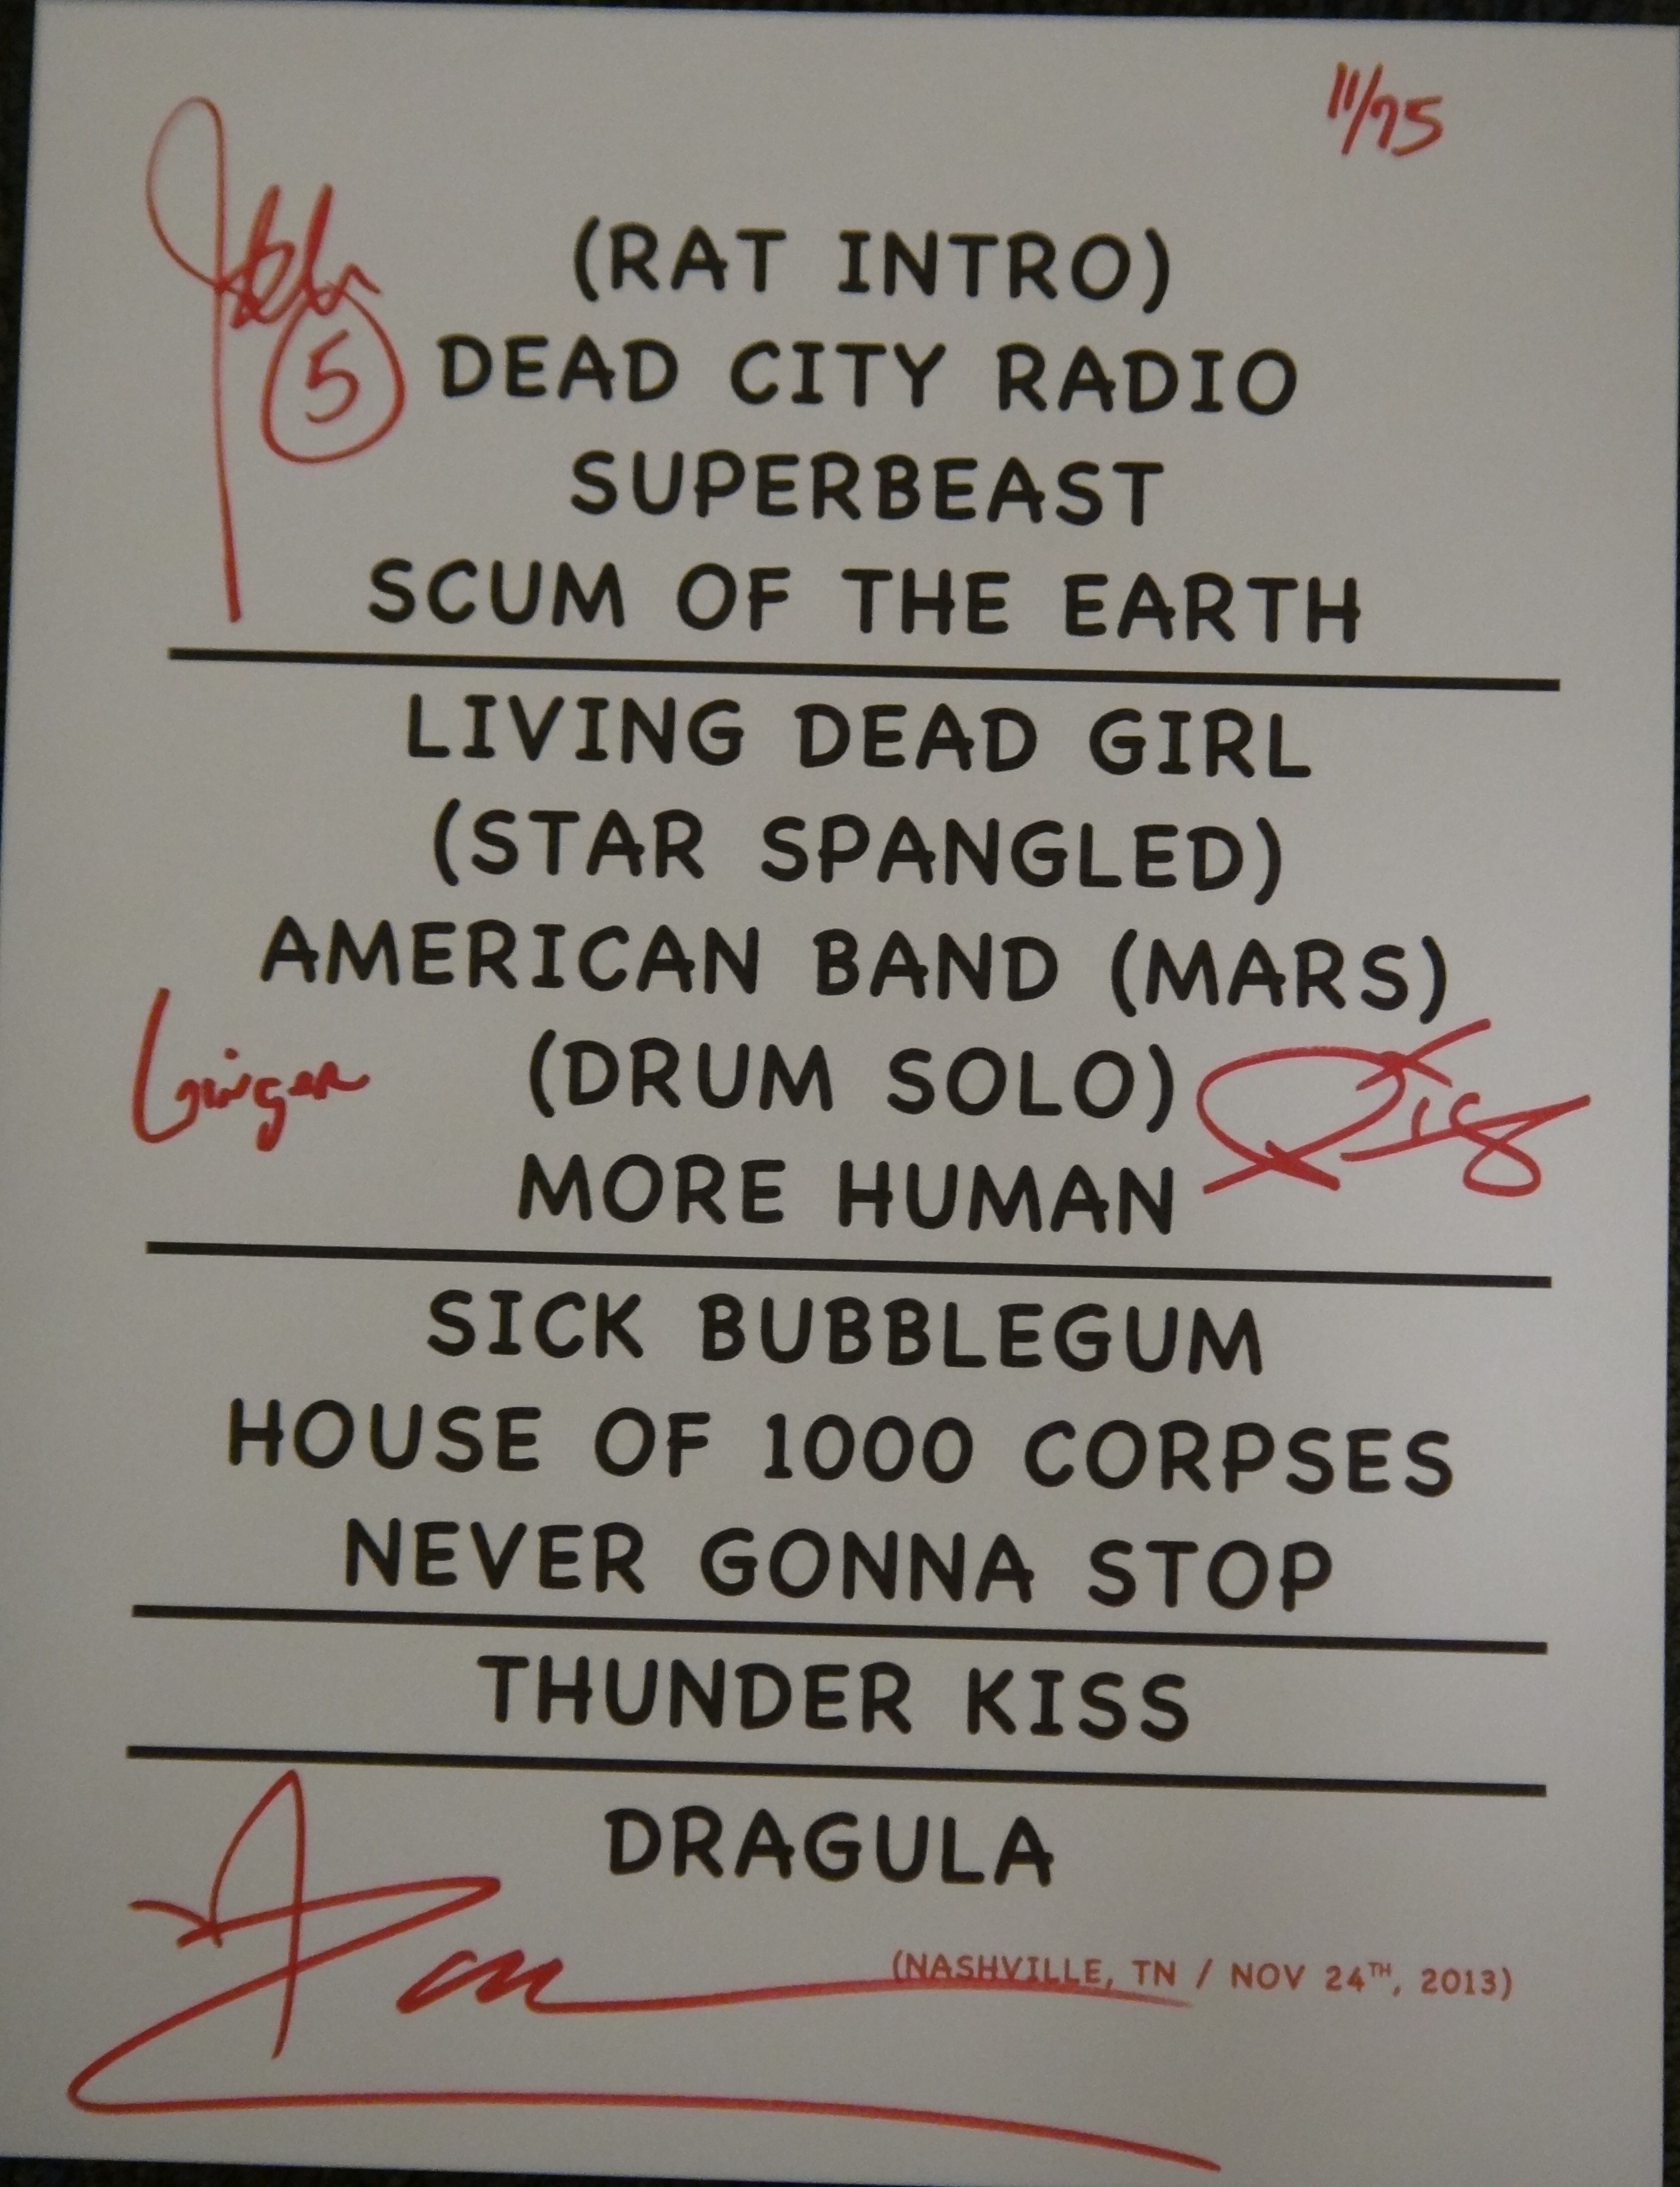 11/75
John
(RAT INTRO)
5
DEAD CITY RADIO
SUPERBEAST
SCUM OF THE EARTH
LIVING DEAD GIRL
(STAR SPANGLED)
AMERICAN BAND (MARS)
Ginger
(DRUM SOLO)
MORE HUMAN
SICK BUBBLEGUM
HOUSE OF 1000 CORPSES
NEVER GONNA STOP
THUNDER KISS
DRAGULA
(NASHVILLE, TN / NOV 24TH, 2013)